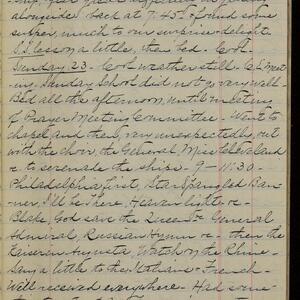 alongside back at 7.45 & found some
supper, much to our surprise & delight
S. S. lesson a little, then bed. Cool
Sunday 23 - Cool weather still. C. E. Meet-
ing. Sunday School did not go very well-
Bed all the afternoon, until meeting
of Prayer Meeting Committee - Went to
chapel and then, very unexpectedly, out
with the choir, the General, Miss Cleaveland
to serenade the ships. 9 - 11:30 -
Philadelphia first, Star Spangled Ban-
ner, I'll be There, Heaven light &c -
Blake, God save the Queen &c General
Admiral, Russian Hymn &c - then the
Kaiserin Augusta, Watch on the Rhine
Sang a little to the
French -
Well received everywhere. Had some